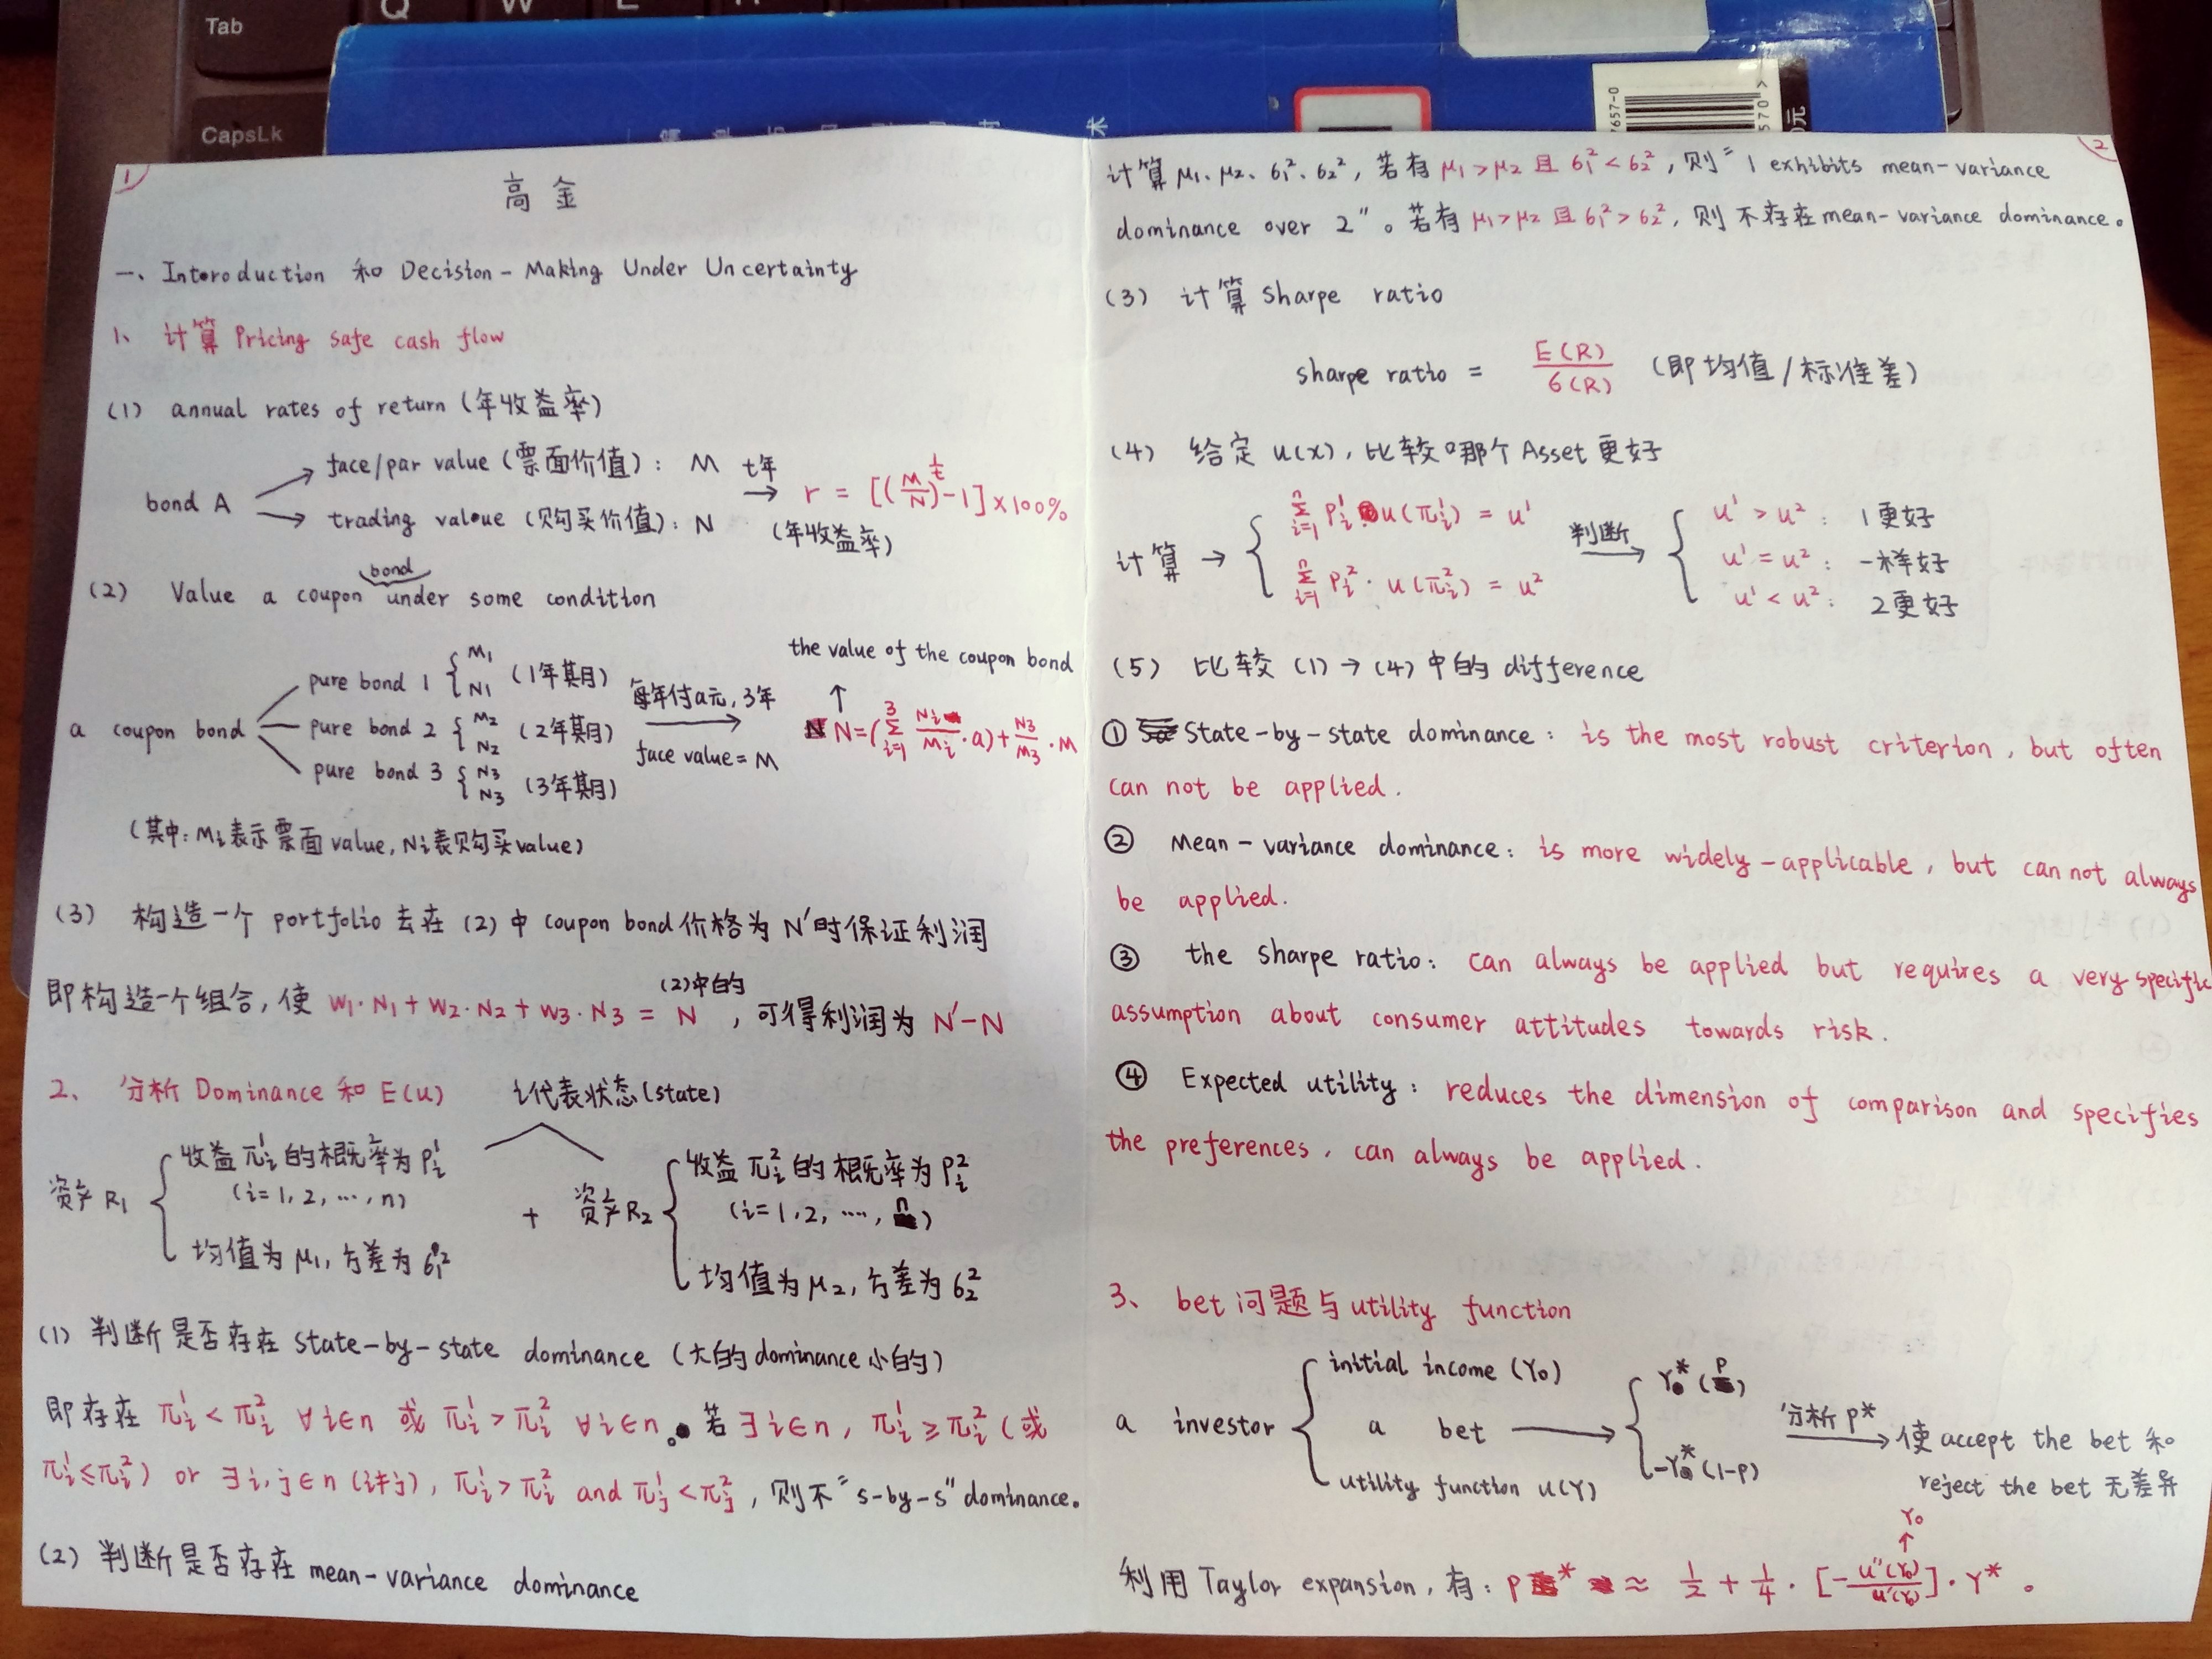 Tab
Q W E
CapsLk
术
7657-0
570>
元
1
高金
一、Intoroduction 和 Decision-Making Under Uncertainty
1、计算 Pricing safe cash flow
(1) annual rates of return (年收益率)
face/par value (票面价值): M
bond A
trading valoue (购买价值): N
t年 → r = [(M/N)^(1/t) - 1] × 100%
(年收益率)
(2) Value a coupon bond under some condition
the value of the coupon bond
↑
a coupon bond
pure bond 1 { M1 N1 (1年期)
pure bond 2 { M2 N2 (2年期)
pure bond 3 { N3 N3 (3年期)
每年付a元,3年
face value = M
N = (Σ_{i=1}^{3} Ni/Mi · a) + N3/M3 · M
(其中: Mi表示票面value, Ni表购买value)
(3) 构造一个 portfolio 去在 (2) 中 coupon bond 价格为 N' 时保证利润
即构造一个组合, 使 W1·N1 + W2·N2 + W3·N3 = N (2)中的, 可得利润为 N'-N
2、分析 Dominance 和 E(u)
i代表状态(state)
资产 R1 { 收益 π_i^1 的概率为 P_i^1
(i=1,2,…,n)
均值为 μ1, 方差为 6_1^2
+ 资产R2 { 收益 π_i^2 的概率为 P_i^2
(i=1,2,…,n)
均值为 μ2, 方差为 6_2^2
(1) 判断是否存在 state-by-state dominance (大的 dominance 小的)
即存在 π_i^1 < π_i^2 ∀i∈n 或 π_i^1 > π_i^2 ∀i∈n。若∃i∈n, π_i^1 ≥ π_i^2 (或
π_i^1 ≤ π_i^2) or ∃i,j∈n (i≠j), π_i^1 > π_i^2 and π_j^1 < π_j^2, 则不"s-by-s" dominance。
(2) 判断是否存在 mean-variance dominance
2
计算 μ1、μ2、6_1^2、6_2^2, 若有 μ1 > μ2 且 6_1^2 < 6_2^2, 则"1 exhibits mean-variance
dominance over 2"。若有 μ1 > μ2 且 6_1^2 > 6_2^2, 则不存在 mean-variance dominance。
(3) 计算 sharpe ratio
sharpe ratio = E(R)/6(R) (即均值/标准差)
(4) 给定 u(x), 比较哪个 Asset 更好
计算 → { Σ_{i=1}^{n} P_i^1 u(π_i^1) = u^1
Σ_{i=1}^{n} P_i^2 · u(π_i^2) = u^2
判断 → { u^1 > u^2: 1更好
u^1 = u^2: 一样好
u^1 < u^2: 2更好
(5) 比较 (1) → (4) 中的 difference
① State-by-state dominance: is the most robust criterion, but often
can not be applied.
② Mean-variance dominance: is more widely-applicable, but can not always
be applied.
③ the sharpe ratio: can always be applied but requires a very specific
assumption about consumer attitudes towards risk.
④ Expected utility: reduces the dimension of comparison and specifies
the preferences, can always be applied.
3、bet 问题与 utility function
a investor { initial income (Y0)
a bet → { Y* (P)
-Y* (1-P)
utility function u(Y)
分析 P* → 使 accept the bet 和
reject the bet 无差异
Y0
↑
利用 Taylor expansion, 有: P* ≈ 1/2 + 1/4 · [-u''(Y0)/u'(Y0)] · Y* 。